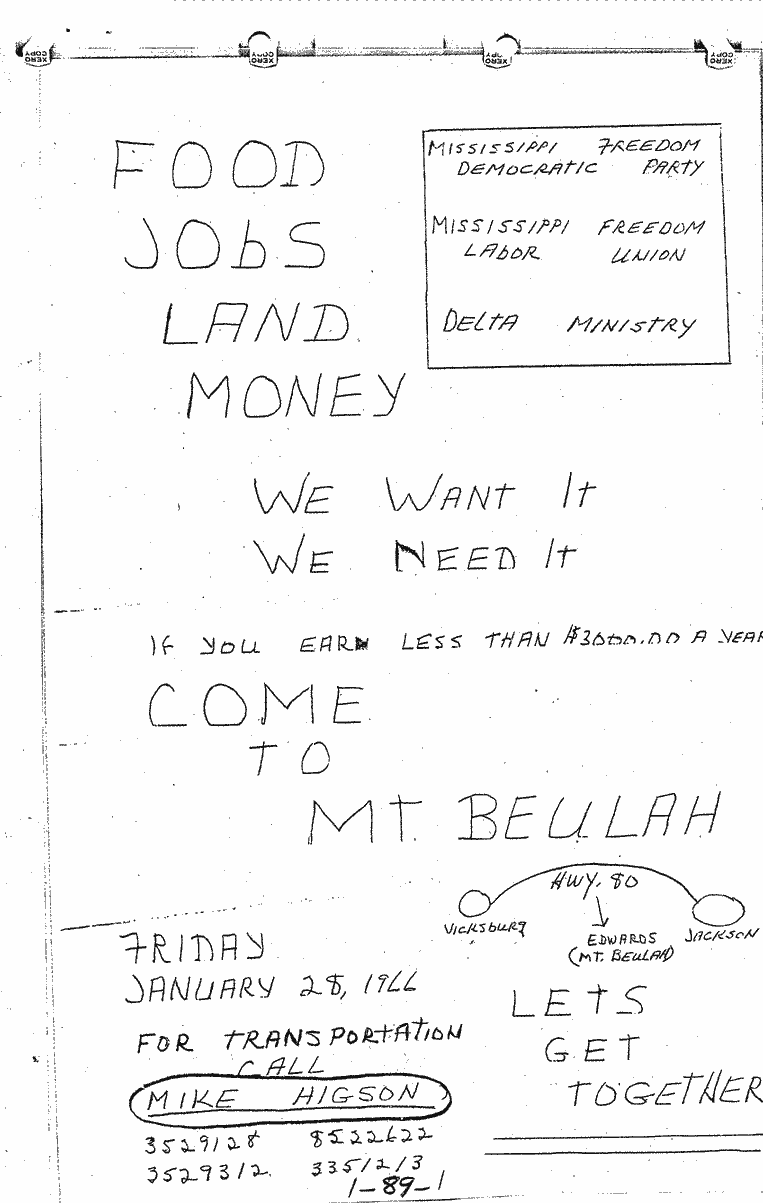 XERO COPY XERO COPY XERO COPY XERO COPY
FOOD
JObS
LAND
MONEY
MISSISSIPPI FREEDOM
DEMOCRATIC PARTY
MISSISSIPPI FREEDOM
LAbOR UNION
DELTA MINISTRY
WE WANT It
WE NEED It
If YOU EARN LESS THAN $3000.00 A YEAR
COME
TO
MT. BEULAH
HWY. 80
VICKSbURg
EDWARDS
(MT. BEULAH)
JACKSON
FRIDAY
JANUARY 28, 1966
FOR TRANSPORTATION
CALL
MIKE HIGSON
3529128 8522622
3529312 3351213
1-89-1
LETS
GET
TOGETHER